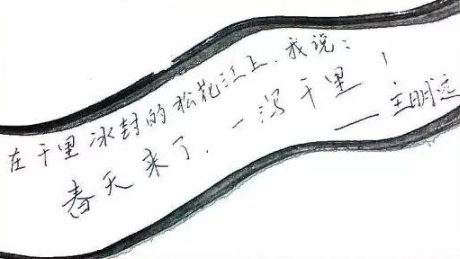 在千里冰封的松花江上，我说：
春天来了，一泻千里！
——王明远